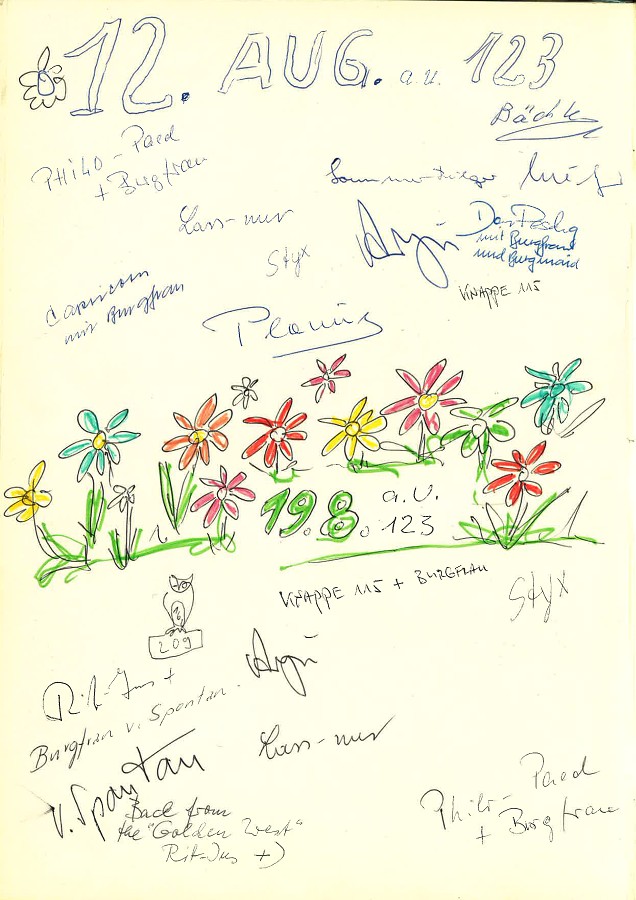 12. AUG. a.u. 123
Bächle
PHILO-Paed
+ Burgfrau
Lass-mer
Styx
Capricorn
mit Burgfrau
mit Burgfrau
und Burgmaid
KNAPPE 115
19.8. a.U. 123
KNAPPE 115 + BURGFRAU
Styx
209
Rit-Jus +
Burgfrau v. Spontan.
v. Spontan
Back from
the "Golden West"
Rit-Jus +)
Lass-mer
Philo-Paed
+ Burgfrau